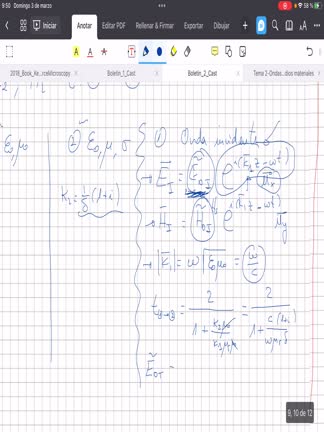 9:50 Domingo 3 de marzo
58 %
Iniciar Anotar Editar PDF Recursos Cobertura Exportar Dibujar
2018_Book_Ke...rceMicroscopy
Boletin_1_Cast
Boletin_2_Cast
Tema 2-Ondas...dios materiales
ε₀, μ₀
② ε₀, μ, σ
K₂ = 1/δ (1+i)
① Onda incidente
→ E_I = Ẽ₀I e^i(K₁z - ωt) û_x
→ H_I = H̃₀I e^i(K₁z - ωt) û_y
→ |K₁| = ω√ε₀μ₀ = ω/c
t①→② = 2 / 1 + = 2 / 1 + c(1+i)/ωμᵣδ
Ẽ₀T =
9, 10 de 12